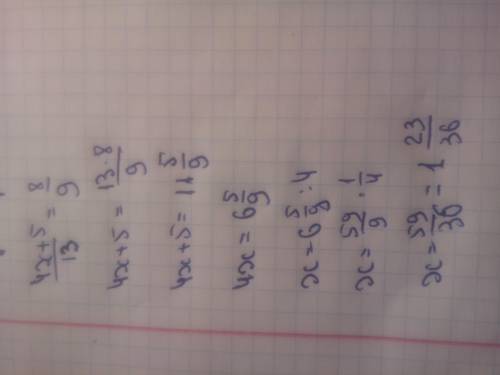 (4x+5)/13 = 8/9
4x+5 = (13·8)/9
4x+5 = 11 5/9
4x = 6 5/9
x = 6 5/9 : 4
x = 59/9 · 1/4
x = 59/36 = 1 23/36